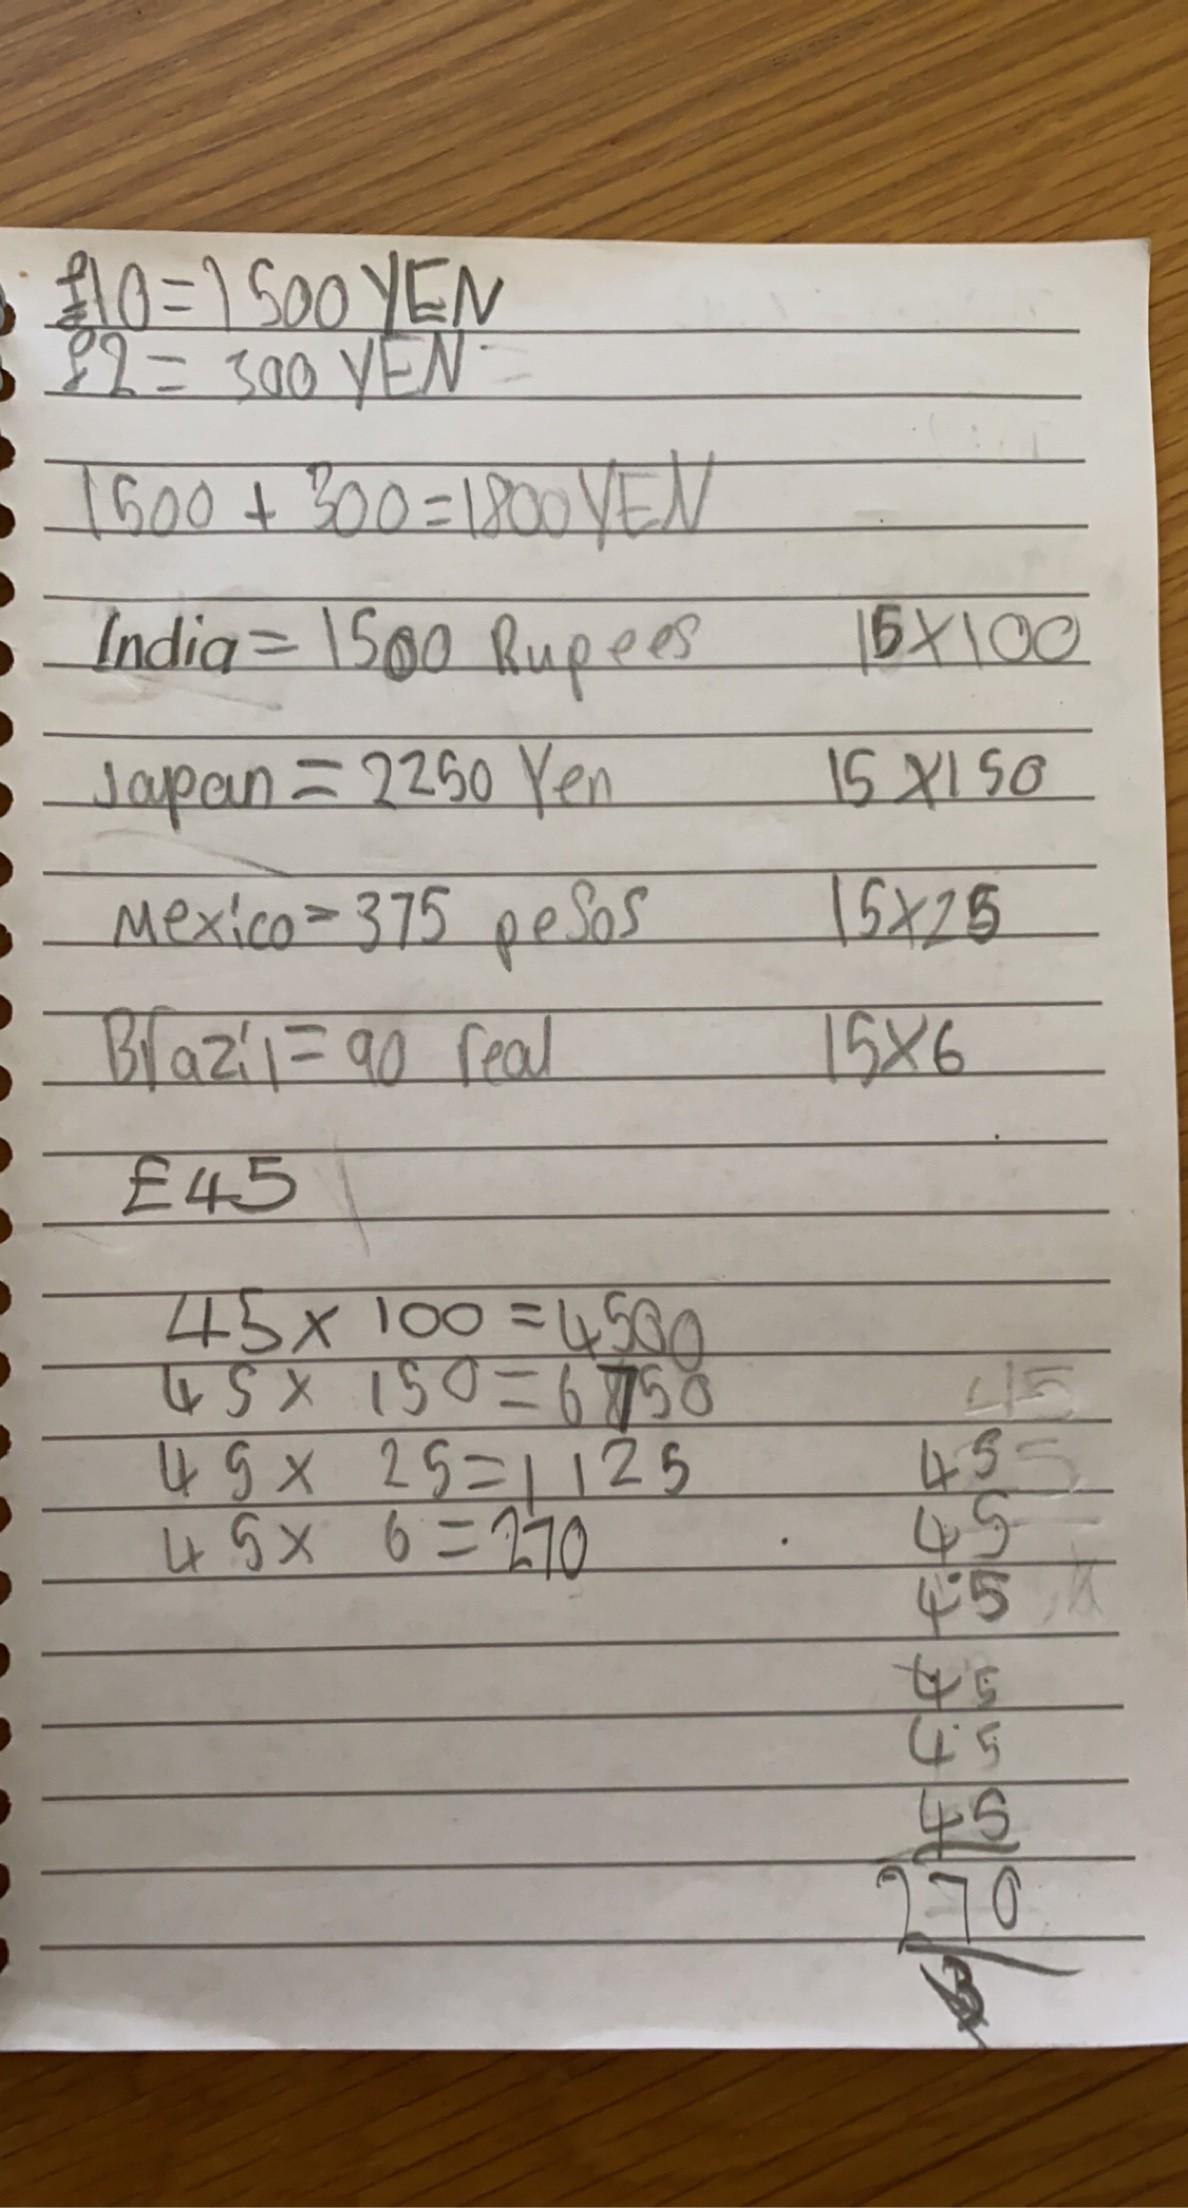 £10=1500 YEN
£2= 300 YEN =
1500 + 300=1800 YEN
India= 1500 Rupees 15X100
Japan = 2250 Yen 15 X150
Mexico= 375 pesos 15X25
Brazil= 90 real 15X6
£45
45x 100 =4500
45x 150=6750
45x 25=1125
45x 6=270
45
45
45
45
45
45
45
270